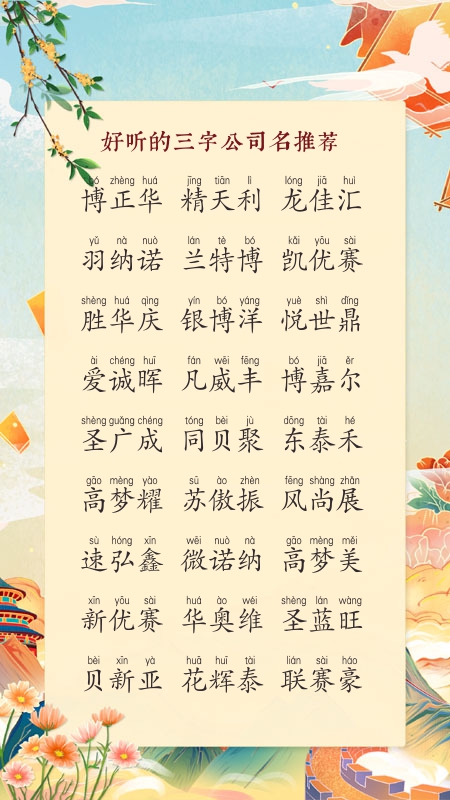 好听的三字公司名推荐
bó zhèng huá jīng tiān lì lóng jiā huì
博正华 精天利 龙佳汇
yǔ nà nuò lán tè bó kǎi yōu sài
羽纳诺 兰特博 凯优赛
shèng huá qìng yín bó yáng yuè shì dǐng
胜华庆 银博洋 悦世鼎
ài chéng huī fán wēi fēng bó jiā ěr
爱诚晖 凡威丰 博嘉尔
shèng guǎng chéng tóng bèi jù dōng tài hé
圣广成 同贝聚 东泰禾
gāo mèng yào sū ào zhèn fēng shàng zhǎn
高梦耀 苏傲振 风尚展
sù hóng xīn wēi nuò nà gāo mèng měi
速弘鑫 微诺纳 高梦美
xīn yōu sài huá ào wéi shèng lán wàng
新优赛 华奥维 圣蓝旺
bèi xīn yà huā huī tài lián sài háo
贝新亚 花辉泰 联赛豪